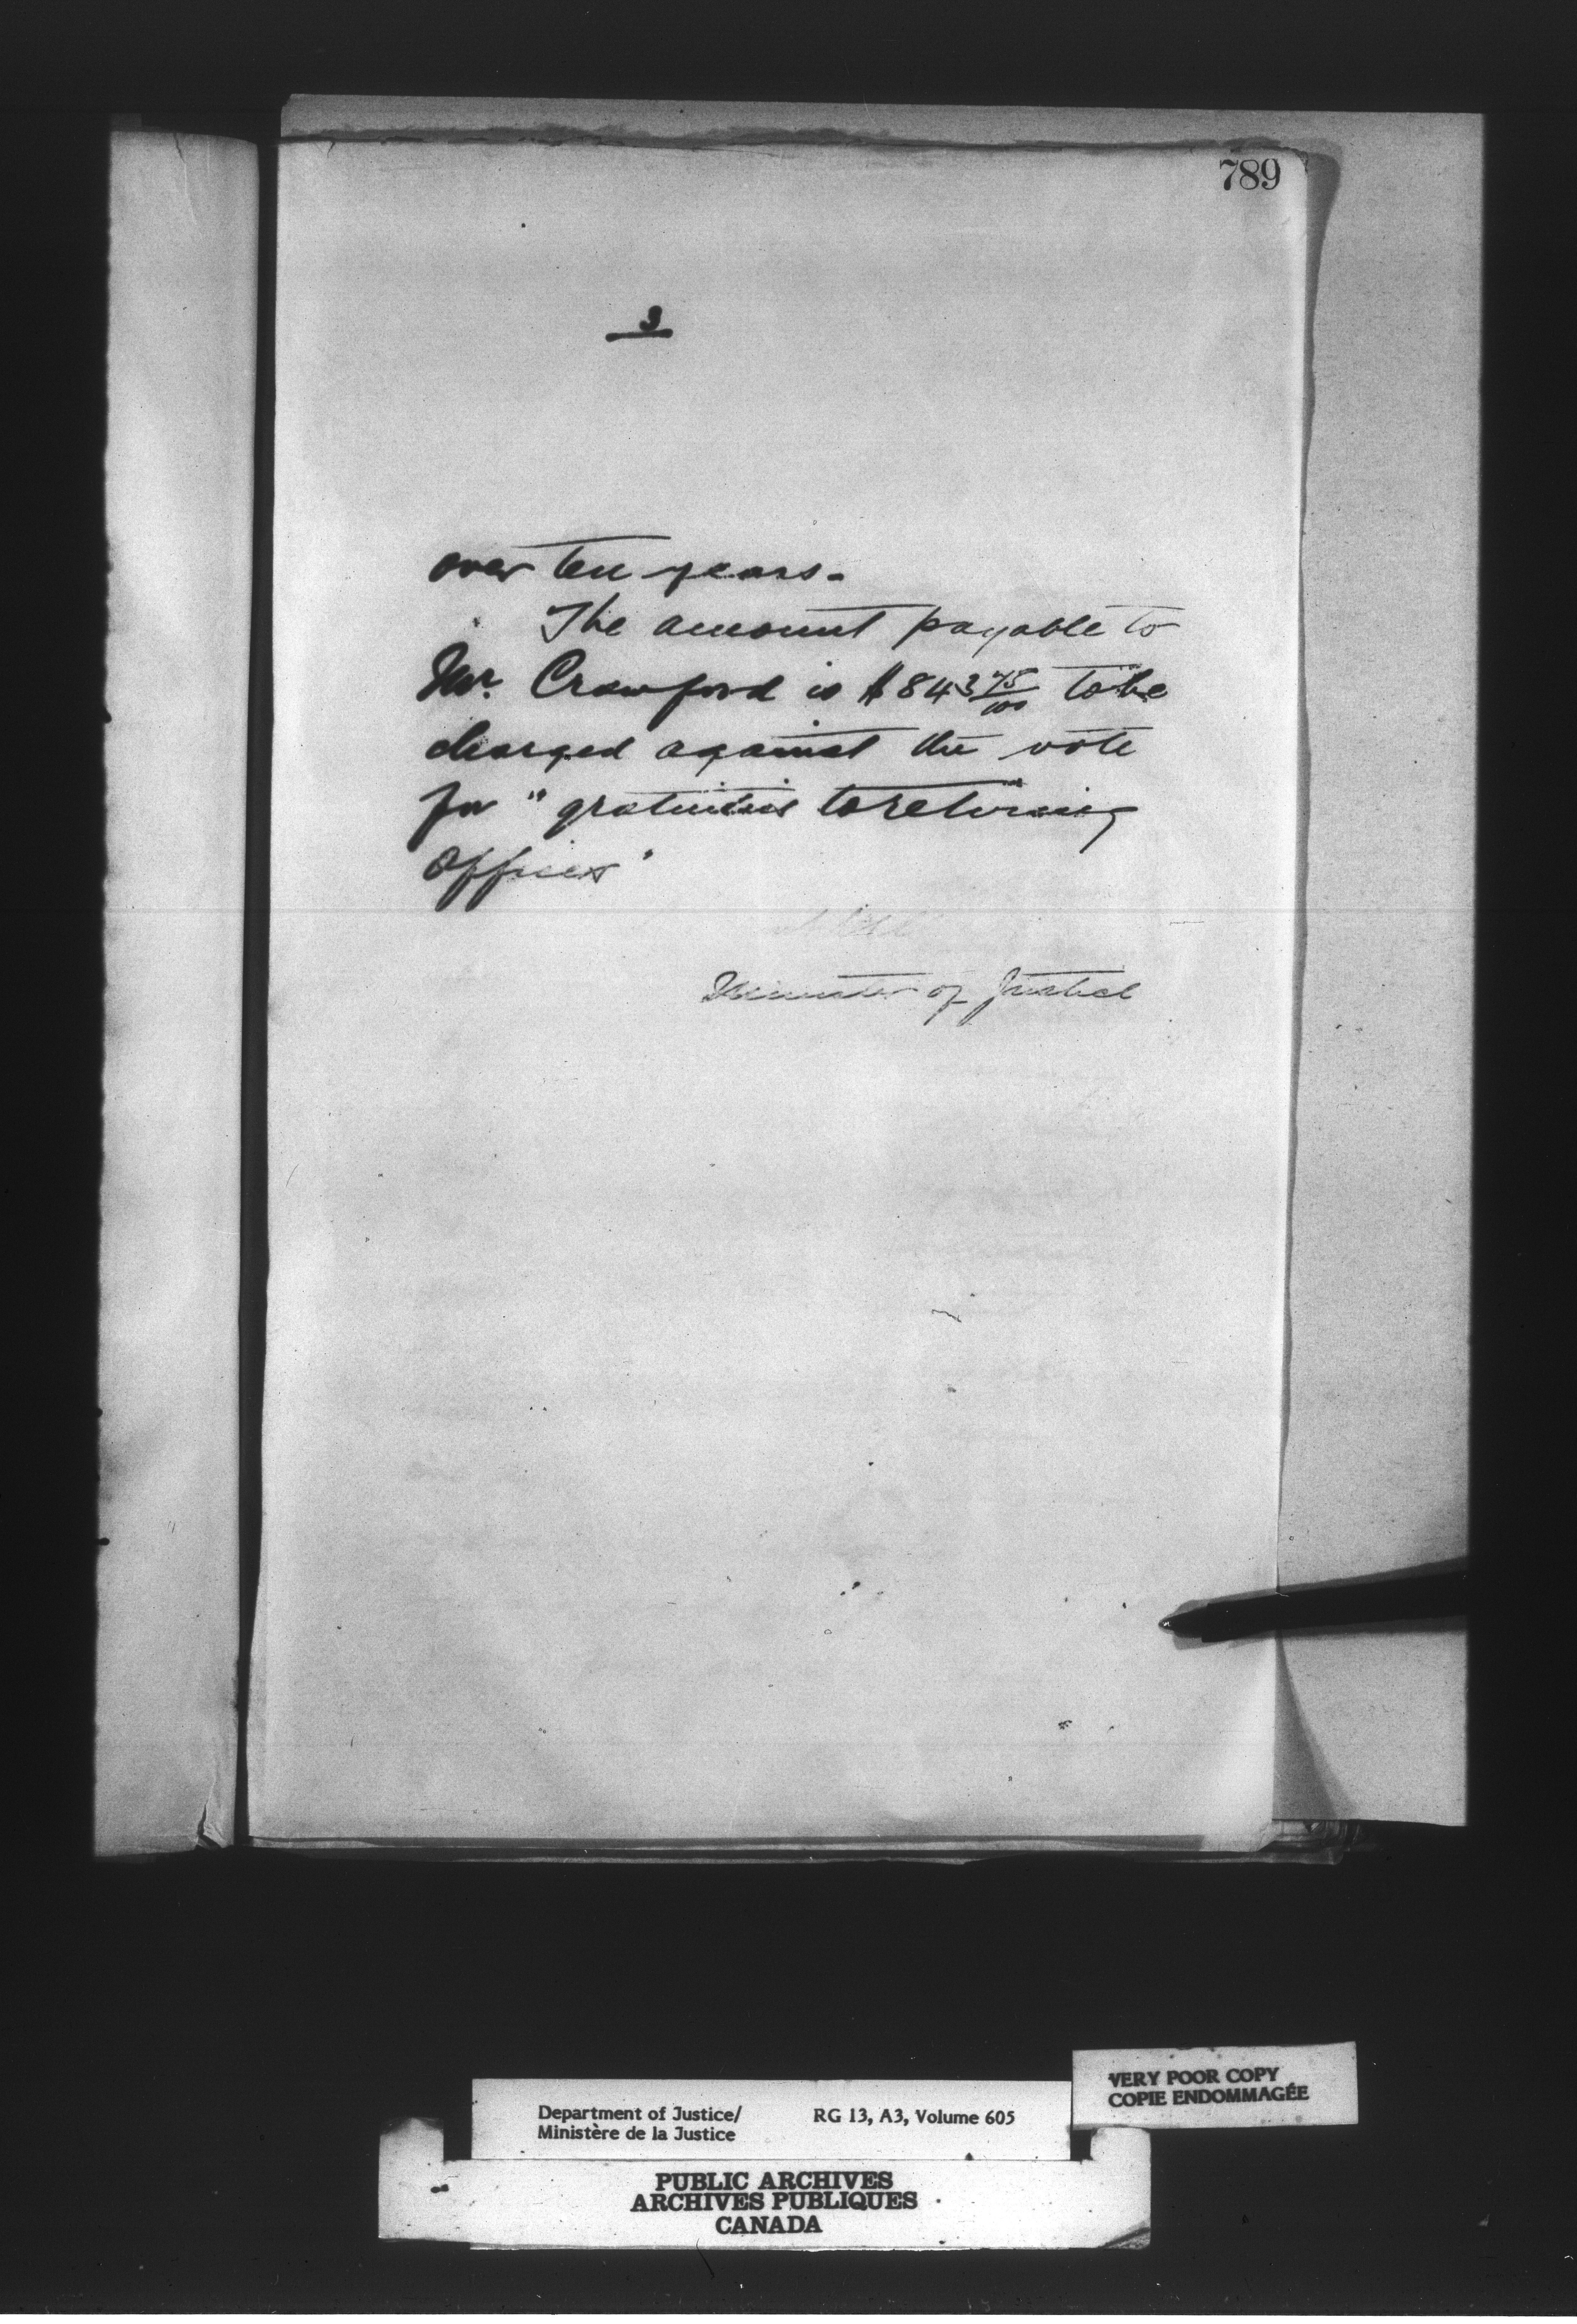 789
3
over ten years.
The amount payable to
Mr. Crawford is $843 75/100 to be
charged against the vote
for "gratuities to retiring
officers"
Minister of Justice
VERY POOR COPY
COPIE ENDOMMAGÉE
Department of Justice/ RG 13, A3, Volume 605
Ministère de la Justice
PUBLIC ARCHIVES
ARCHIVES PUBLIQUES
CANADA